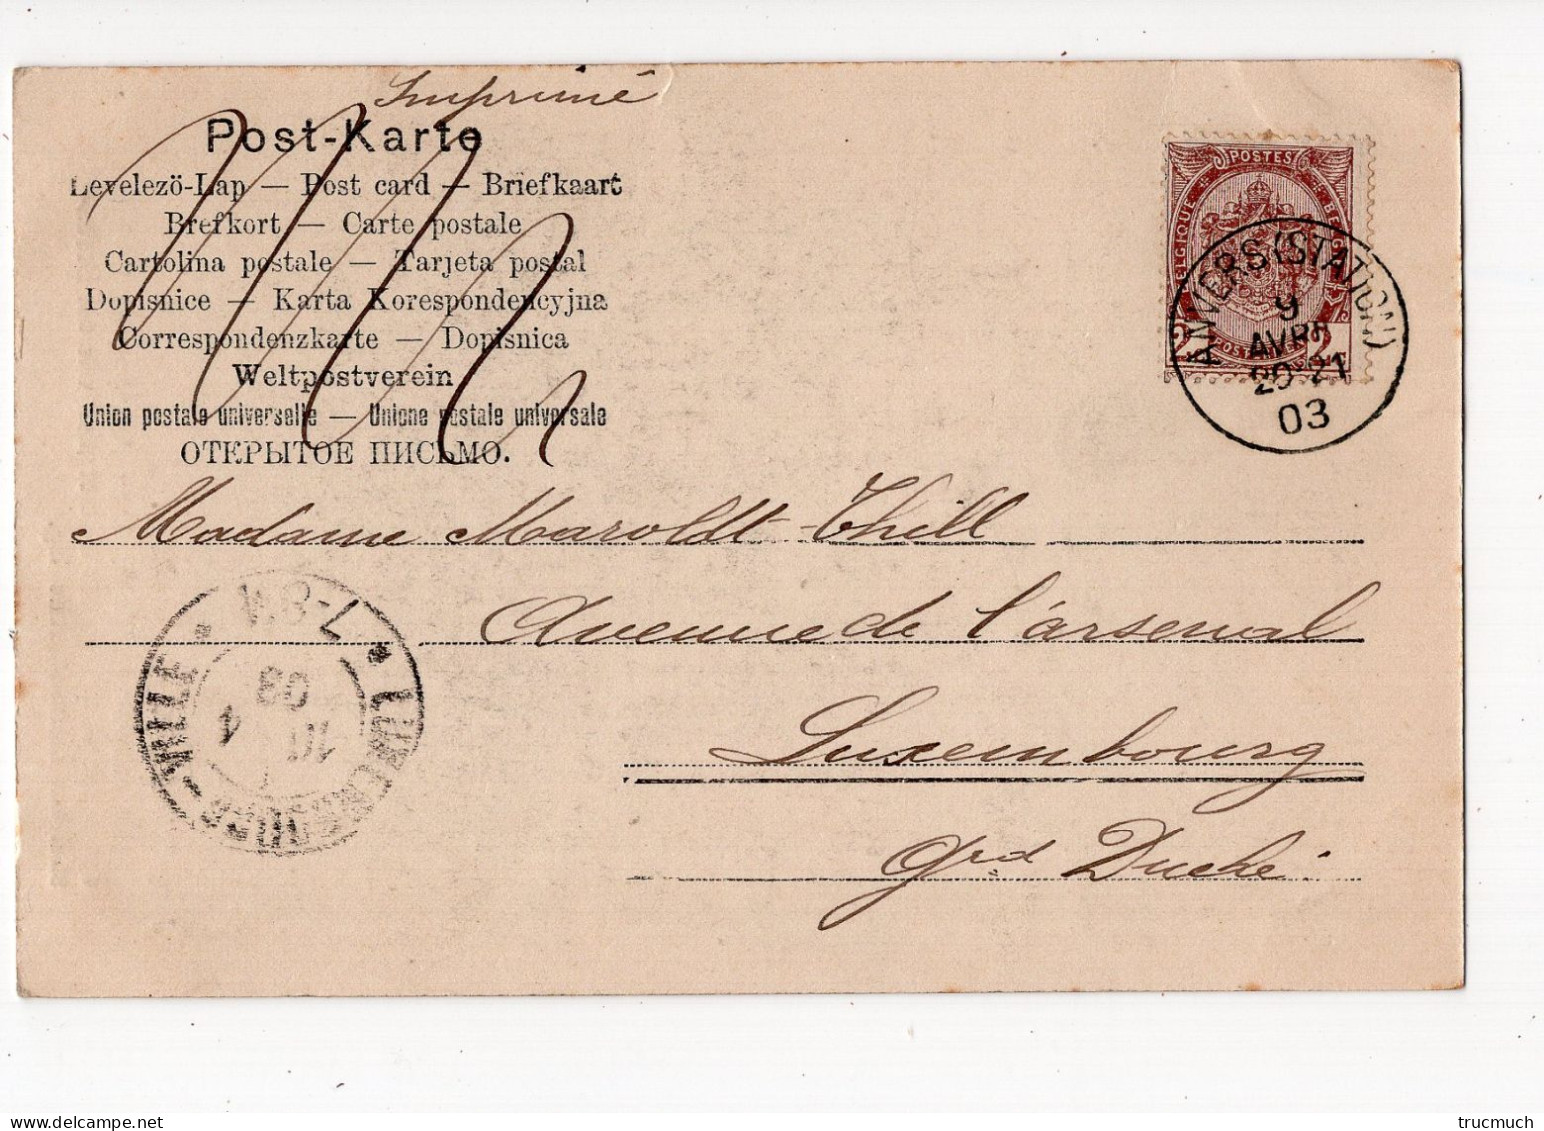 Imprimé
Post-Karte
Levelezö-Lap — Post card — Briefkaart
Brefkort — Carte postale
Cartolina postale — Tarjeta postal
Dopisnice — Karta Korespondencyjna
Correspondenzkarte — Dopisnica
Weltpostverein
Union postale universelle — Unione postale universale
ОТКРЫТОЕ ПИСЬМО.
POSTES
BELGIQUE
2
2
ANVERS (STATION)
9
AVRIL
20-21
03
Madame Maroldt-Thill
Avenue de l'arsenal
Luxembourg
Grd Duché.
LUXEMBOURG-VILLE
7-8
03
10
4
trucmuch